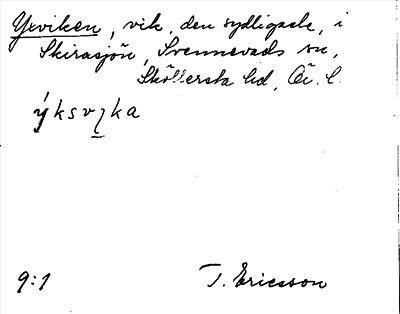 Yxviken, vik, den sydligaste, i
Skirasjön, Svennevads sn,
Sköllersta hd, Ör. l.
ýksvɩka
9:1 T. Ericsson